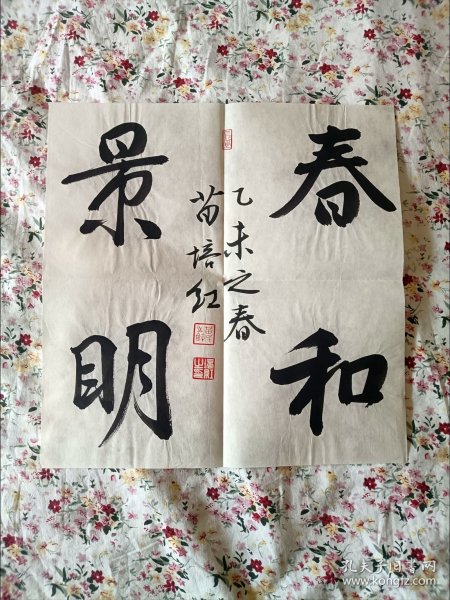 春和
景明
乙未之春
苗培红
孔夫子旧书网
www.kongfz.com